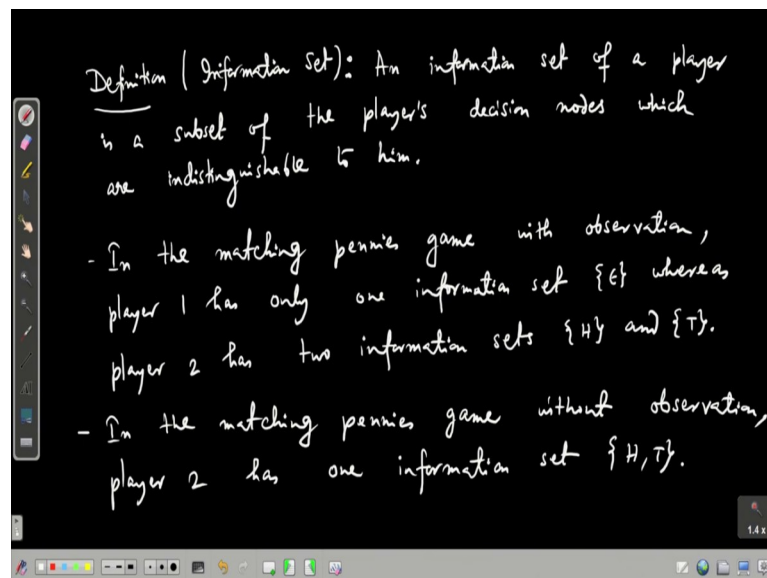 Definition (Information Set): An information set of a player
is a subset of the player's decision nodes which
are indistinguishable to him.
- In the matching pennies game with observation,
player 1 has only one information set {ϵ} whereas
player 2 has two information sets {H} and {T}.
- In the matching pennies game without observation,
player 2 has one information set {H,T}.
1.4 x